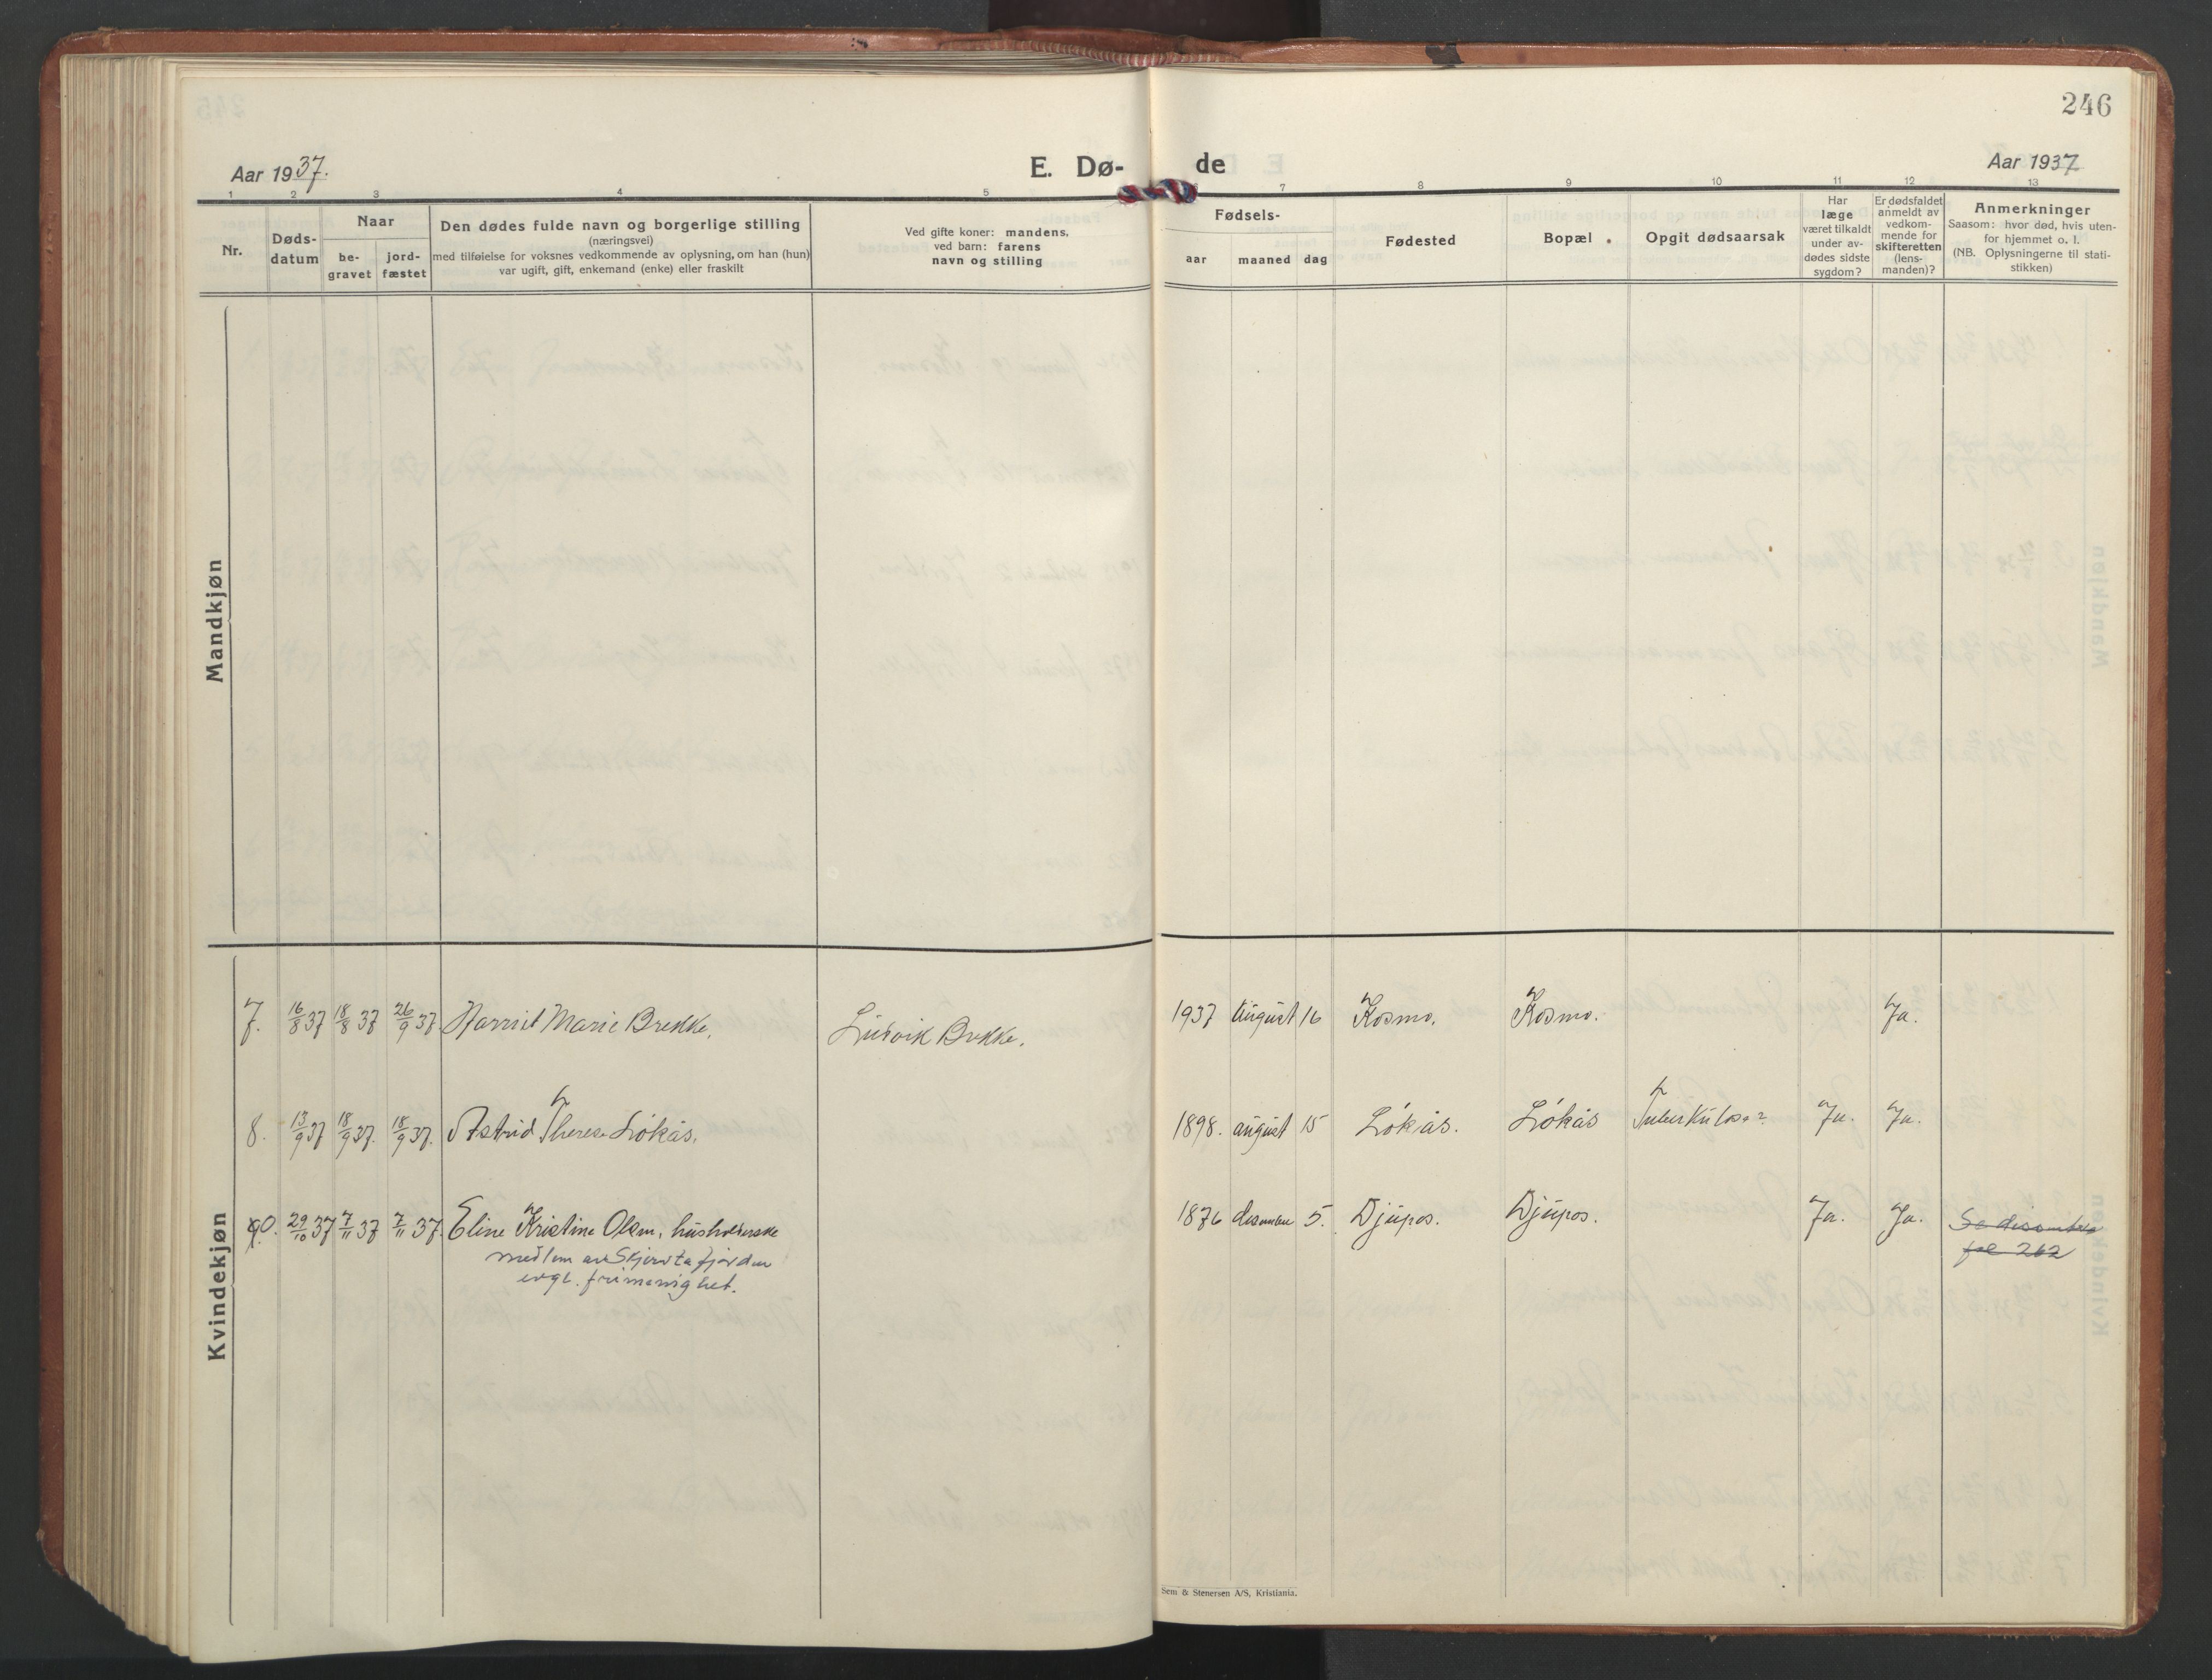 246
Aar 1937.
E. Dø-
de
Aar 1937
1 2 3 4 5 6 7 8 9 10 11 12 13
Nr.
Døds-
datum
Naar
be-
gravet
jord-
fæstet
Den dødes fulde navn og borgerlige stilling
(næringsvei)
med tilføielse for voksnes vedkommende av oplysning, om han (hun)
var ugift, gift, enkemand (enke) eller fraskilt
Ved gifte koner: mandens,
ved barn: farens
navn og stilling
Fødsels-
aar
maaned
dag
Fødested
Bopæl
Opgit dødsaarsak
Har
læge
været tilkaldt
under av-
dødes sidste
sygdom?
Er dødsfaldet
anmeldt av
vedkom-
mende for
skifteretten
(lens-
manden)?
Anmerkninger
Saasom: hvor død, hvis uten-
for hjemmet o. l.
(NB. Oplysningerne til stati-
stikken)
Mandkjøn
Kvindekjøn
7. 16/8 37 18/8 37 26/9 37 Harriet Marie Brekke. Ludvik Brekke. 1937 August 16 Kosmo. Kosmo. Ja.
8. 13/9 37 18/9 37. 18/9 37. Astrid Therese Løkås. 1898. august 15 Løkås. Løkås Tuberkulose? Ja. Ja.
29/10 37 7/11 37 7/11 37. Eline Kristine Olsen, husholderske 1876 desember 5. Djupos. Djupos. Ja. Ja. Se desember
medlem av Skjerstafjorden
fol 262
evgl. frimenighet.
Sem & Stenersen A/S, Kristiania.